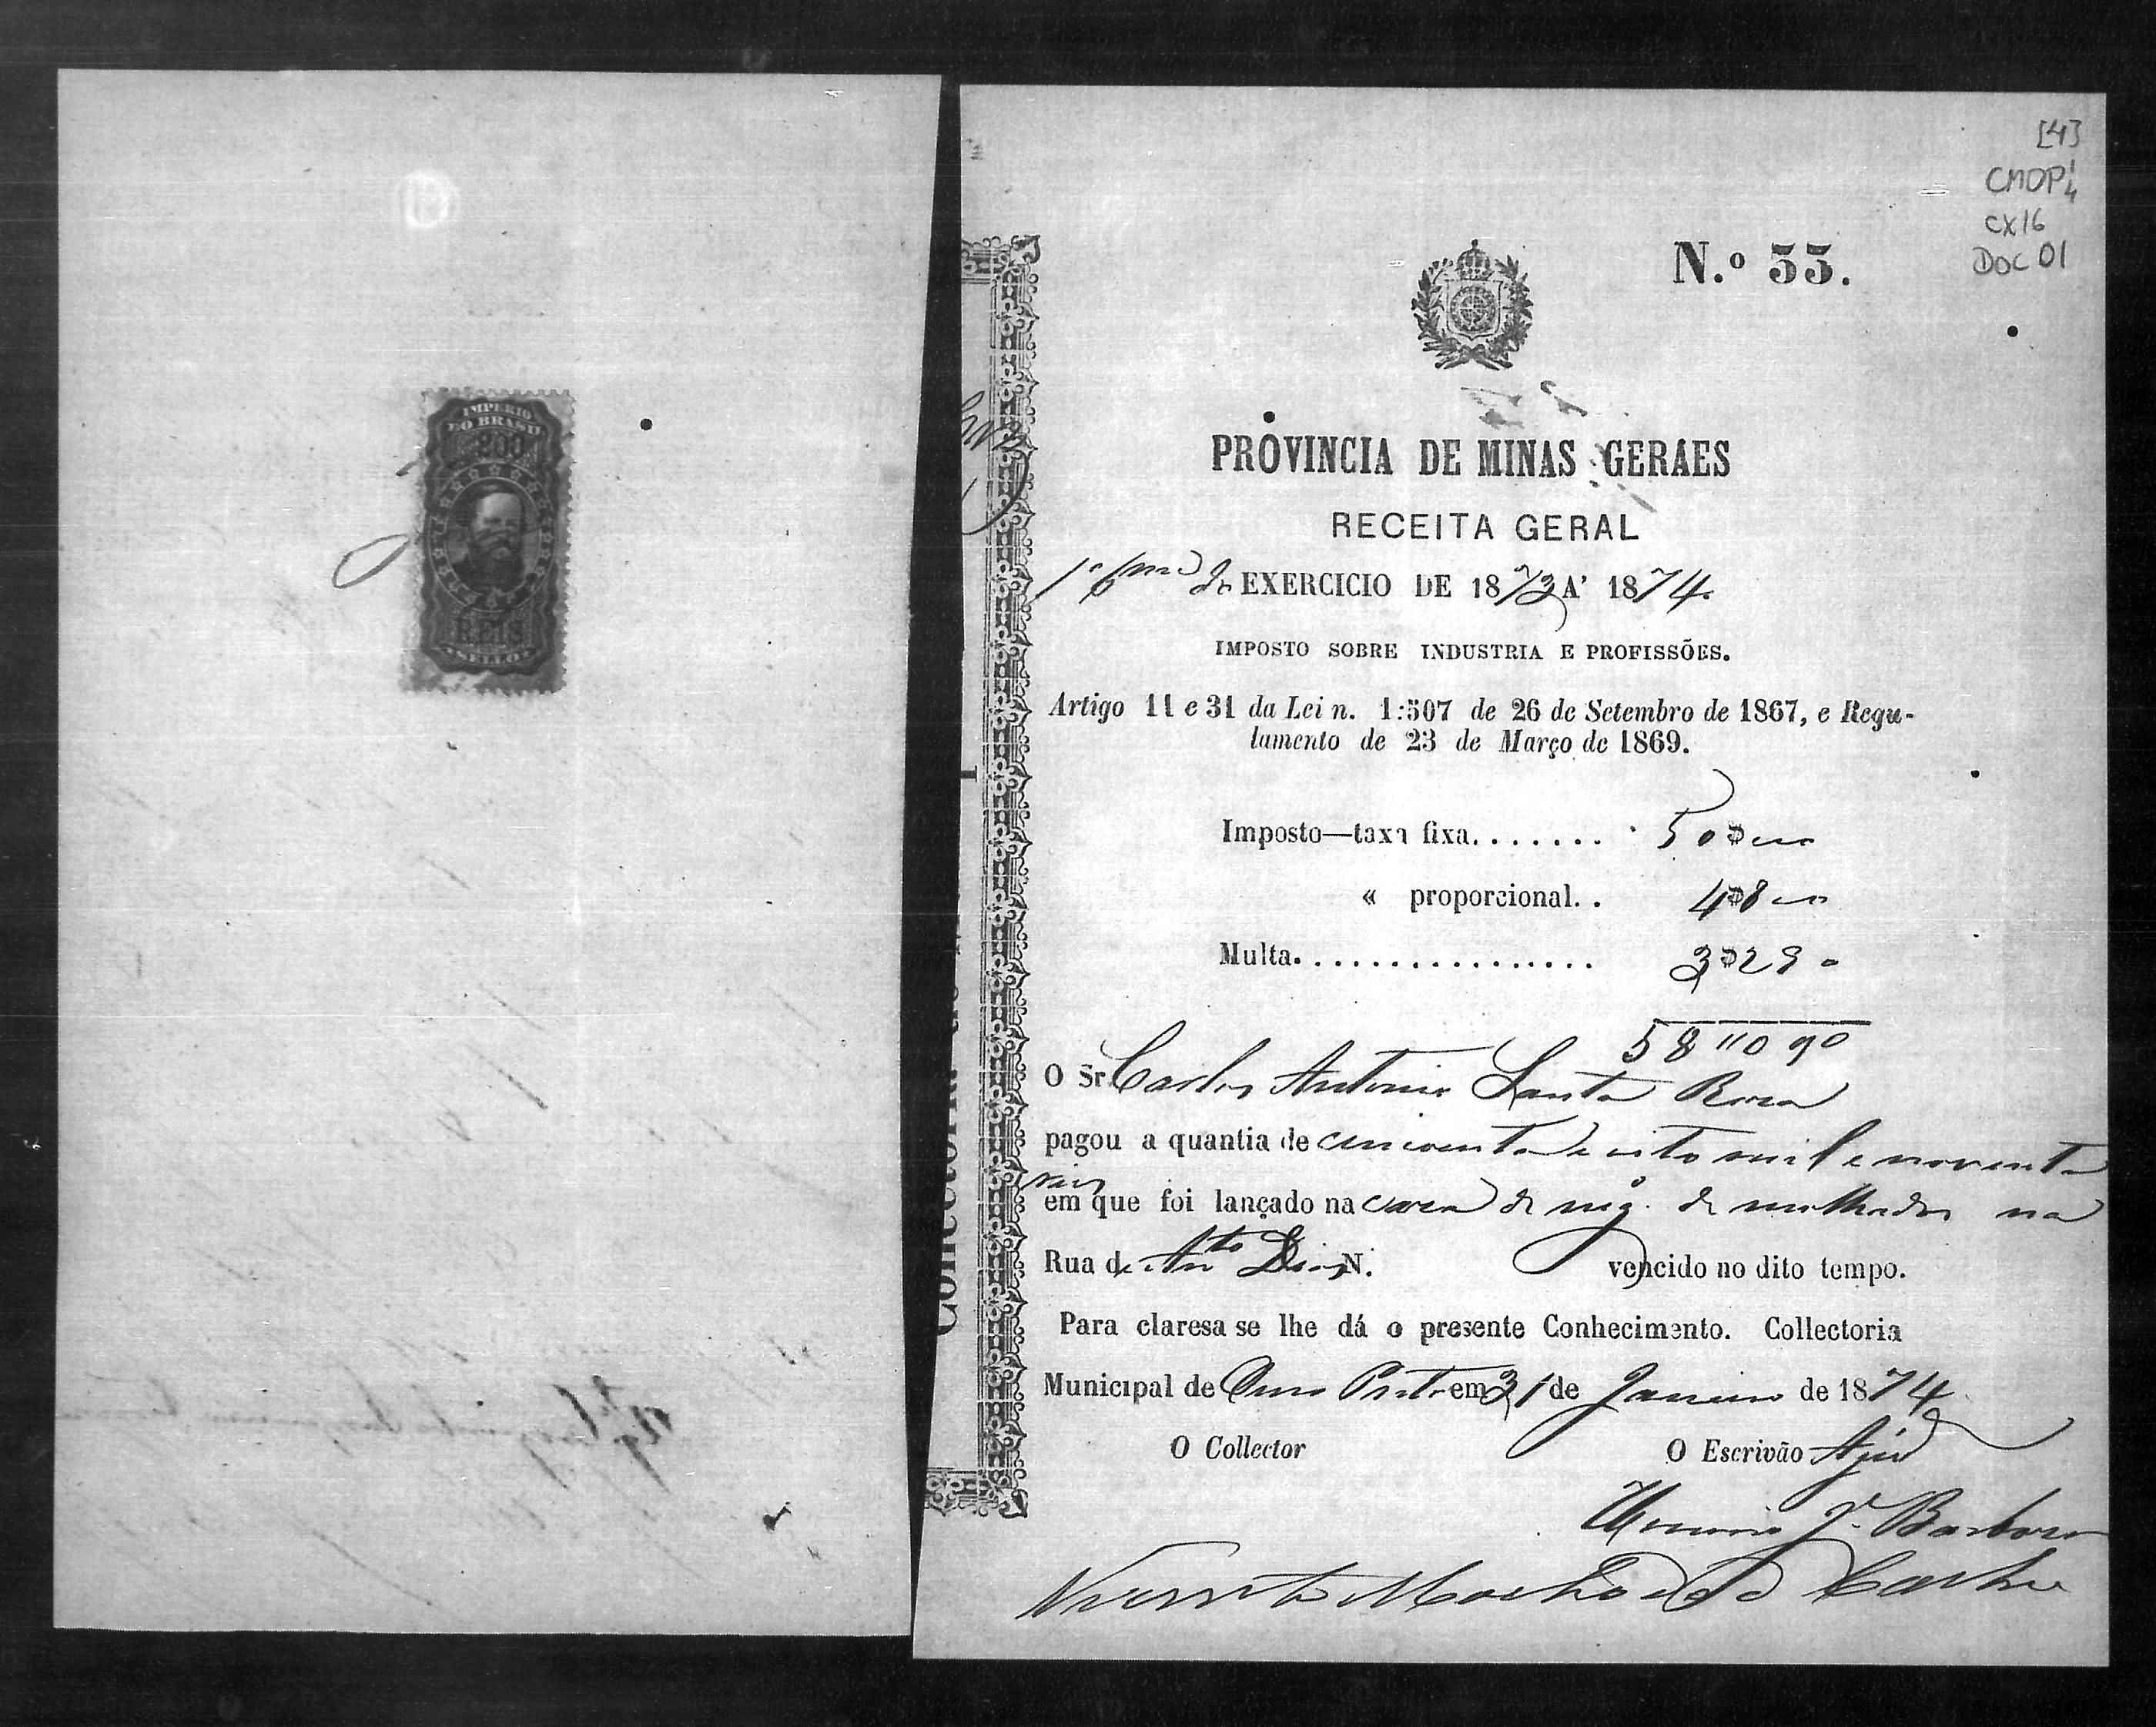 IMPERIO
DO BRASIL
200
REIS
SELLO
[4]
CMOP
CX16
DOC 01
N.º 55.
PROVINCIA DE MINAS GERAES
RECEITA GERAL
1º 6 me de EXERCICIO DE 1873 A' 1874.
IMPOSTO SOBRE INDUSTRIA E PROFISSÕES.
Artigo 11 e 31 da Lei n. 1:507 de 26 de Setembro de 1867, e Regu-
lamento de 23 de Março de 1869.
Imposto—taxa fixa....... 50$000
« proporcional. . 4$800
Multa................. 3$290
58"090
O Sr. Carlos Antonio Santa Rosa
pagou a quantia de cincoenta e oito mil e noventa
reis
em que foi lançado na casa de neg. de molhados na
Rua de Anto Dias N. vencido no dito tempo.
Para claresa se lhe dá o presente Conhecimento. Collectoria
Municipal de Ouro Preto em 31 de Janeiro de 1874
O Collector O Escrivão Ajud
J. Barbosa
Vicente Machado de Castro